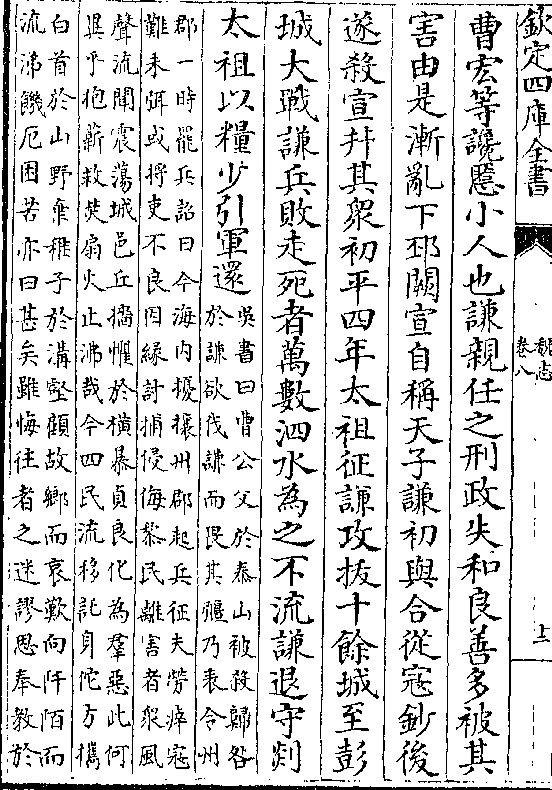 欽定四庫全書
魏志
卷八
曹宏等讒慝小人也謙親任之刑政失和良善多被其
害由是漸亂下邳闕宣自稱天子謙初與合從冦鈔後
遂殺宣幷其衆初平四年太祖征謙攻拔十餘城至彭
城大戰謙兵敗走死者萬數泗水為之不流謙退守剡
太祖以糧少引軍還
吳書曰曹公父於泰山被殺歸咎
於謙欲伐謙而畏其彊乃表令州
郡一時罷兵詔曰今海内擾攘州郡起兵征夫勞瘁冦
難未弭或將吏不良因緣討捕侵侮黎民離害者衆風
聲流聞震蕩城邑丘牆懼於橫暴貞良化為羣惡此何
異乎抱薪救焚扇火止沸哉今四民流移託身佗方攜
白首於山野棄稚子於溝壑顧故鄉而哀歎向阡陌而
流涕饑厄困苦亦曰甚矣雖悔往者之迷謬思奉教於